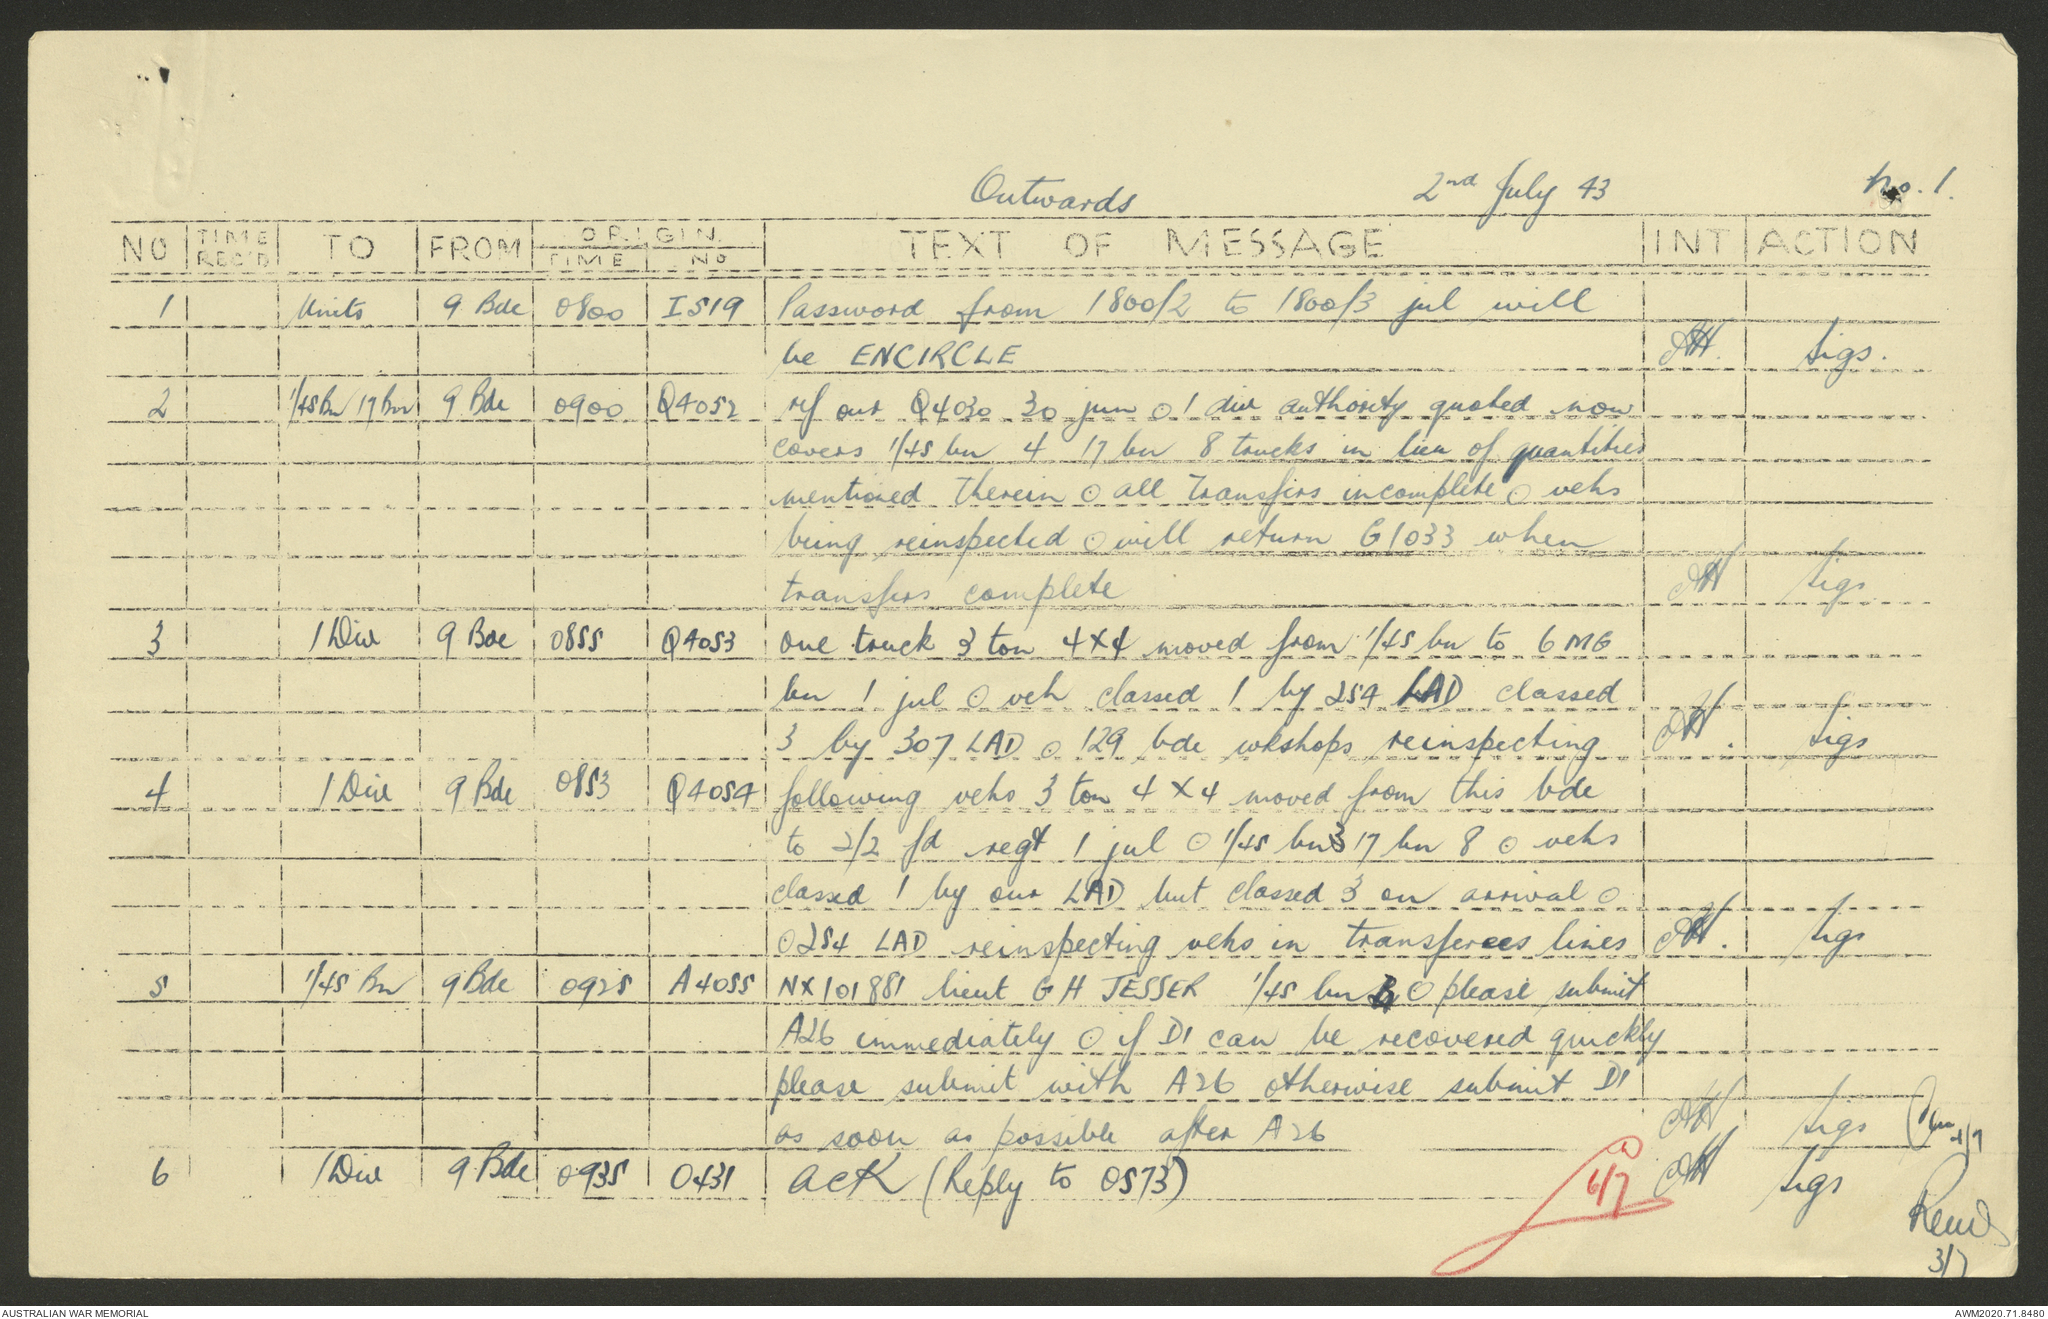 Outwards 2nd July 43 No. 1.
NO TIME REC'D TO FROM ORIGIN TIME NO TEXT OF MESSAGE INT ACTION
1 Units 9 Bde 0800 I519 Password from 1800/2 to 1800/3 jul will
be ENCIRCLE Sigs.
2 1/45 Bn 17 Bn 9 Bde 0900 Q4052 ref our Q4030 30 jun ⊙ 1 div authority quoted now
covers 1/45 bn 4 17 bn 8 trucks in lieu of quantities
mentioned therein ⊙ all transfers incomplete ⊙ vehs
being reinspected ⊙ will return G1033 when
transfers complete Sigs
3 1 Div 9 Bde 0855 Q4053 one truck 3 ton 4X4 moved from 1/45 bn to 6 MG
bn 1 jul ⊙ veh classed 1 by 254 LAD classed
3 by 307 LAD ⊙ 129 bde wkshops reinspecting Sigs
4 1 Div 9 Bde 0853 Q4054 following vehs 3 ton 4X4 moved from this bde
to 2/2 fd regt 1 jul ⊙ 1/45 bn 3 17 bn 8 ⊙ vehs
classed 1 by our LAD but classed 3 on arrival ⊙
⊙ 254 LAD reinspecting vehs in transferees lines Sigs
5 1/45 Bn 9 Bde 0925 A4055 NX101881 lieut G H JESSER 1/45 bn ⊙ please submit
A26 immediately ⊙ if D1 can be recovered quickly
please submit with A26 otherwise submit D1
as soon as possible after A26 Sigs
6 1 Div 9 Bde 0935 O431 ACK (Reply to O573) 6/7 Sigs
3/7
AUSTRALIAN WAR MEMORIAL AWM2020.71.8480